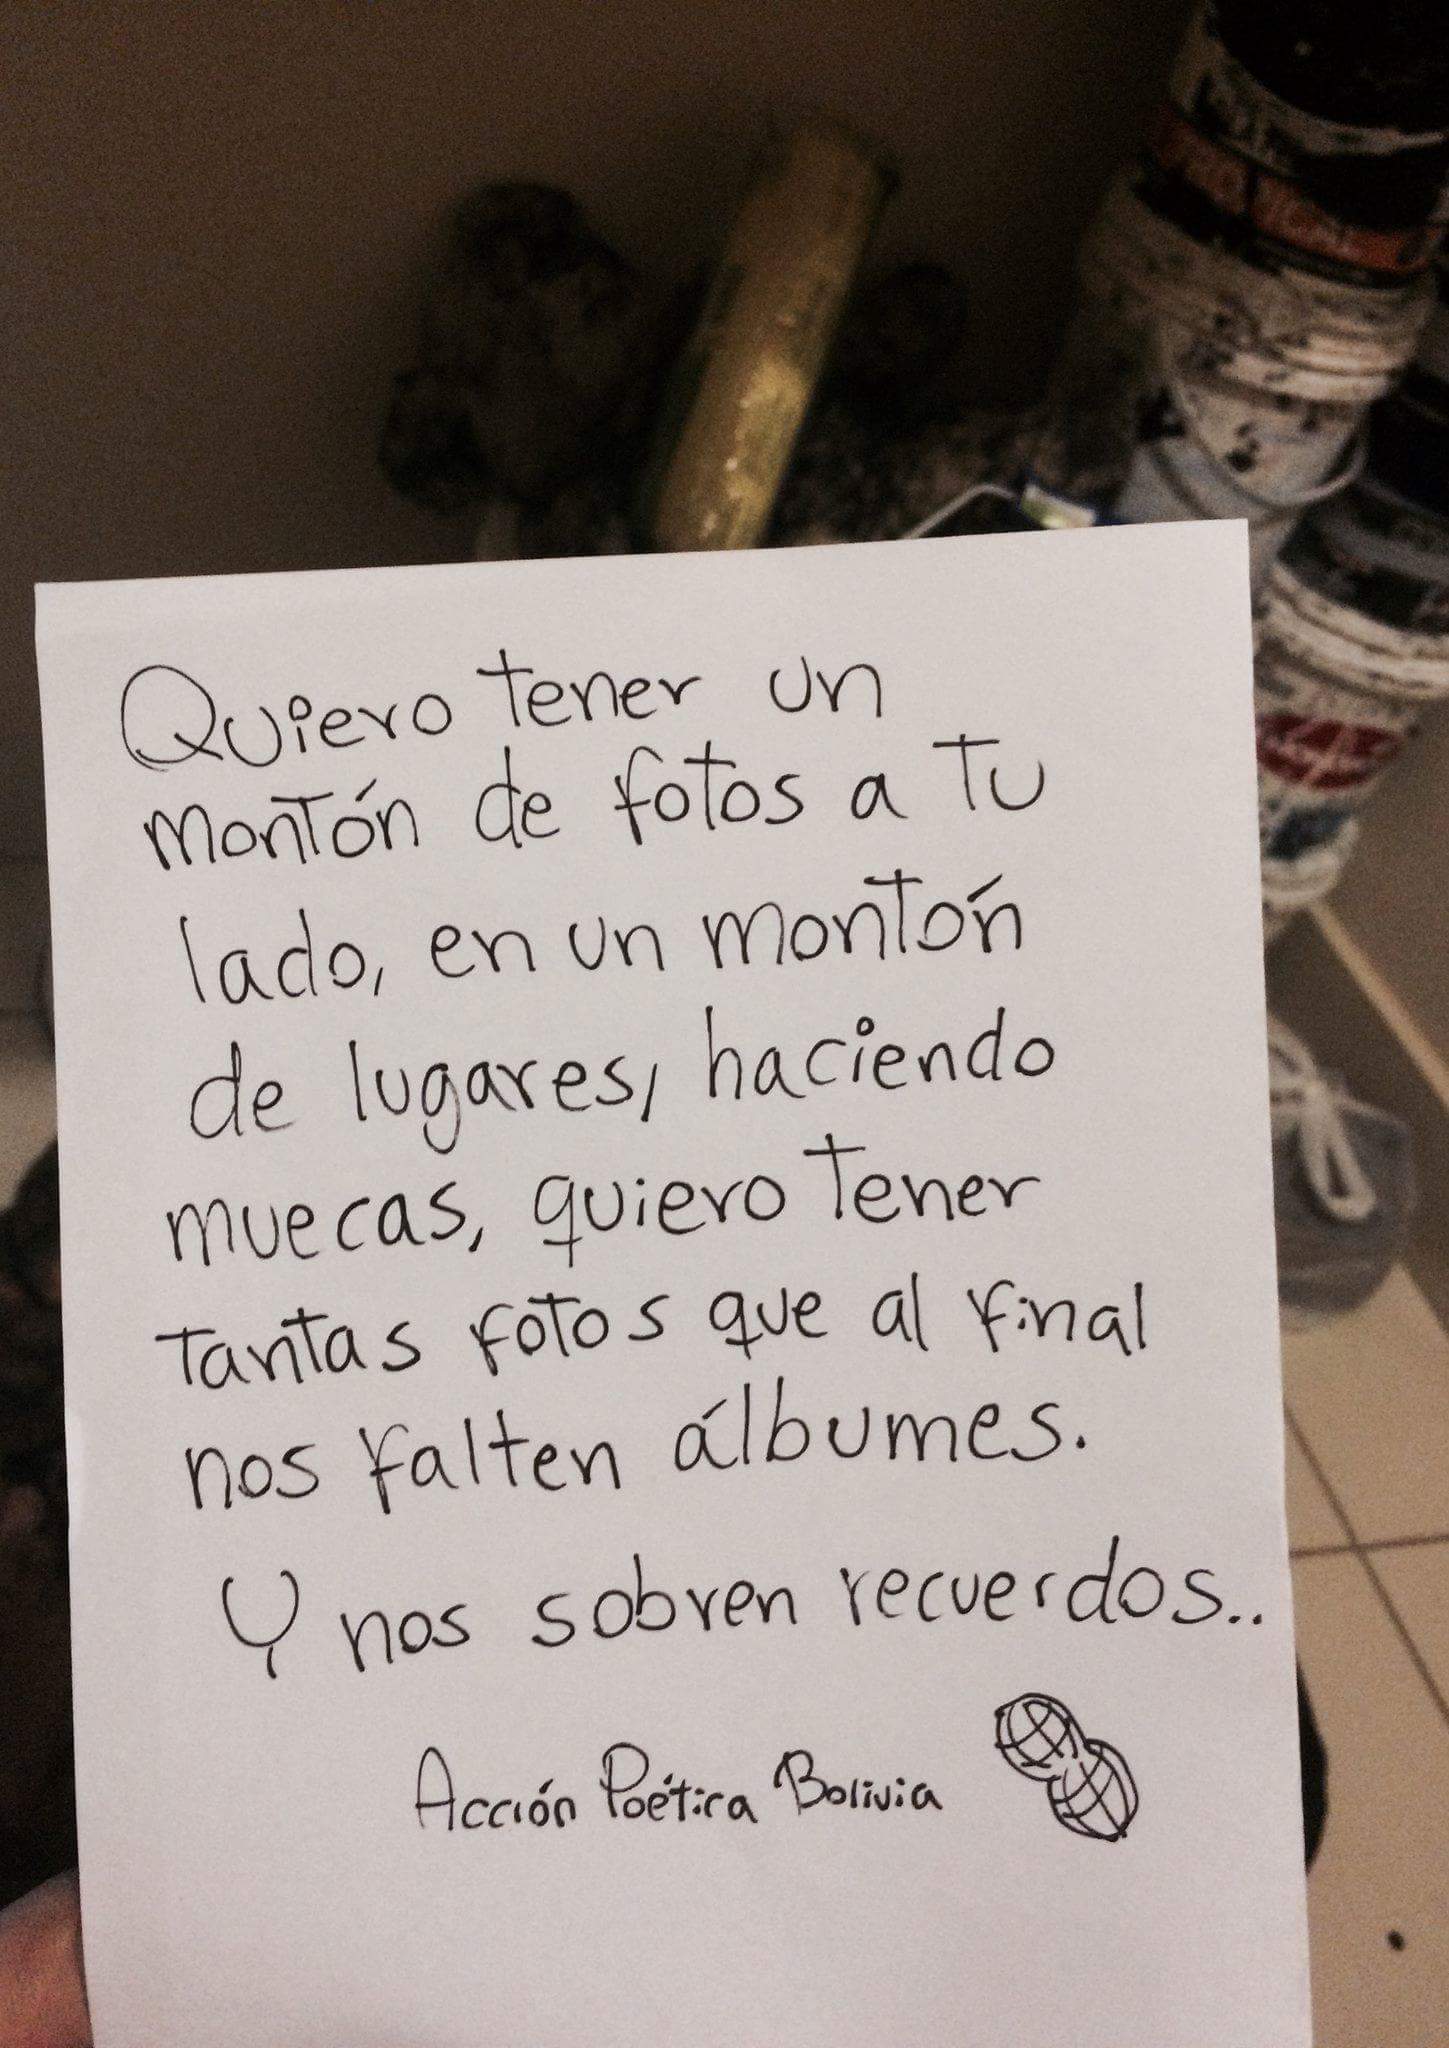 TROPICAL
Quiero tener un
montón de fotos a tu
lado, en un montón
de lugares, haciendo
muecas, quiero tener
tantas fotos que al final
nos falten álbumes.
Y nos sobren recuerdos..
Acción Poética Bolivia